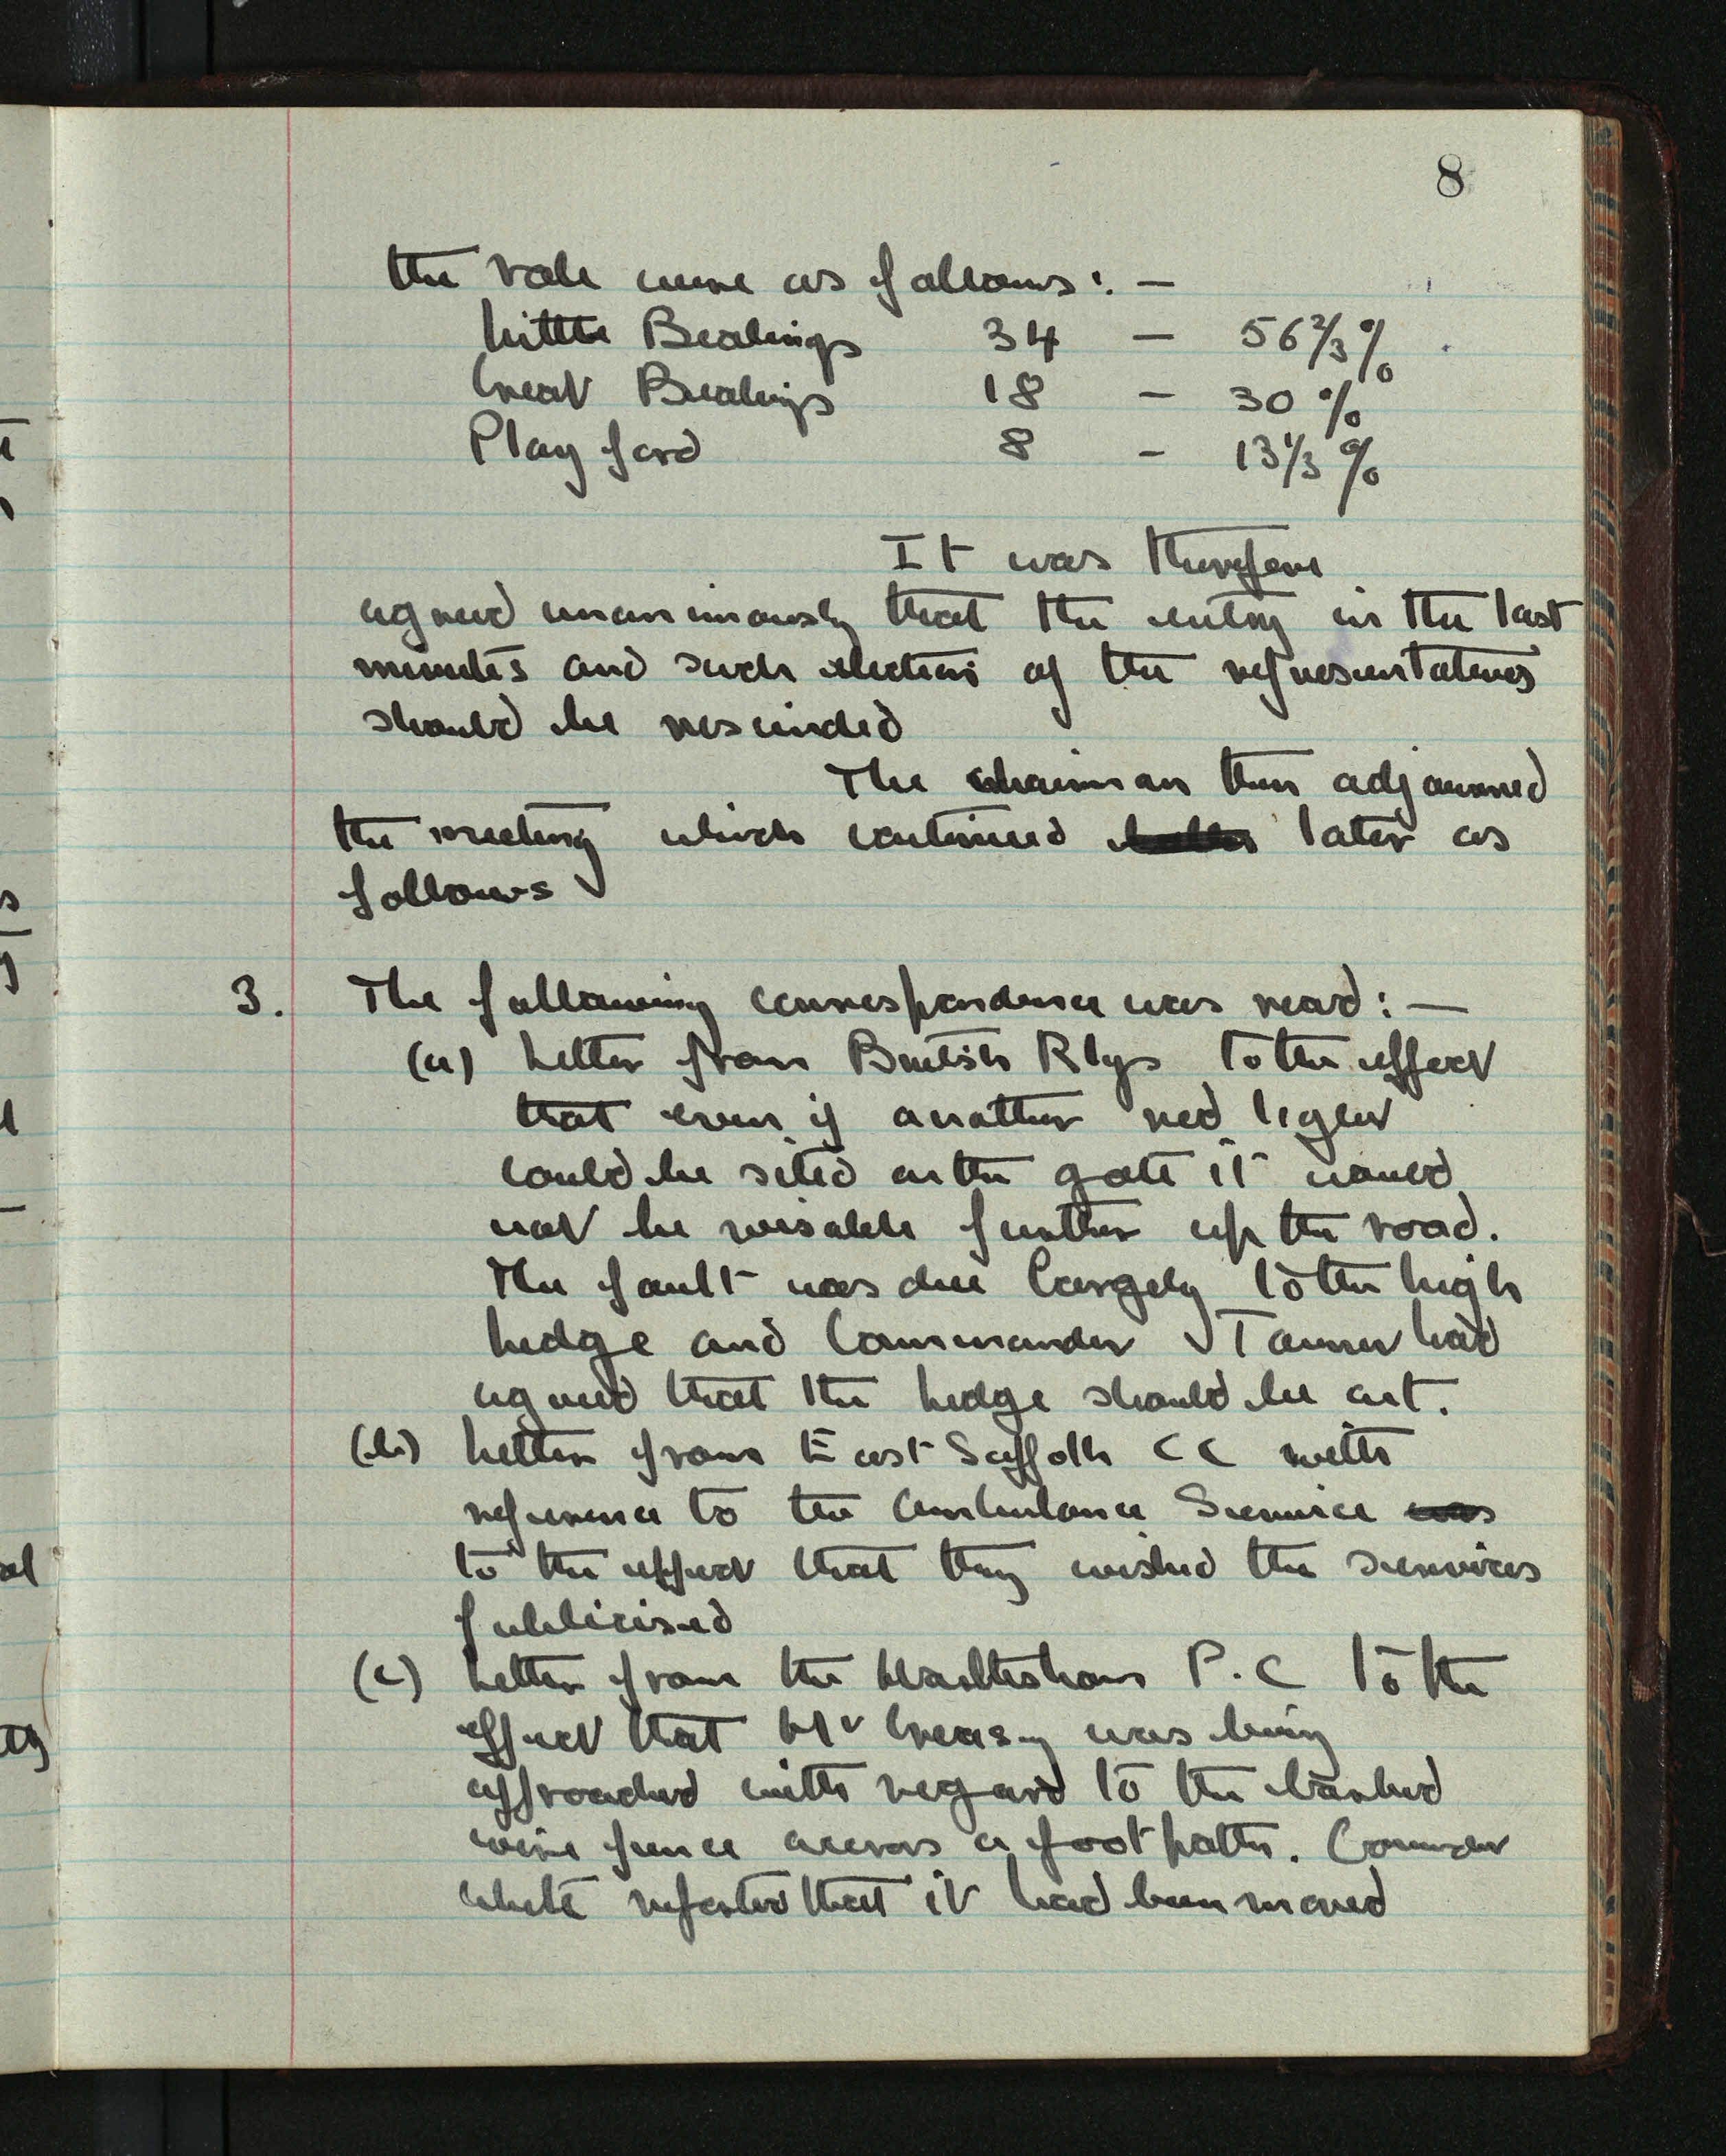 8
the role were as follows: —
Little Bealings 34 — 56 2/3 %
Great Bealings 18 — 30 %
Playford 8 — 13 1/3 %
It was therefore
agreed unanimously that the entry in the last
minutes and such election of the representatives
should be rescinded
The chairman then adjourned
the meeting which continued later as
follows
3. The following correspondence was read: —
(a) Letter from British Rlys to the effect
that even if another red light
could be sited on the gate it would
not be visable further up the road.
The fault was due largely to the high
hedge and Commander Tanner had
agreed that the hedge should be cut.
(b) Letter from East Suffolk CC with
reference to the Ambulance Service was
to the effect that they wished the services
publicised
(c) Letter from the Martlesham P.C to the
effect that Mr Creasy was being
approached with regard to the barbed
wire fence across a footpath.
White reported that it had been moved